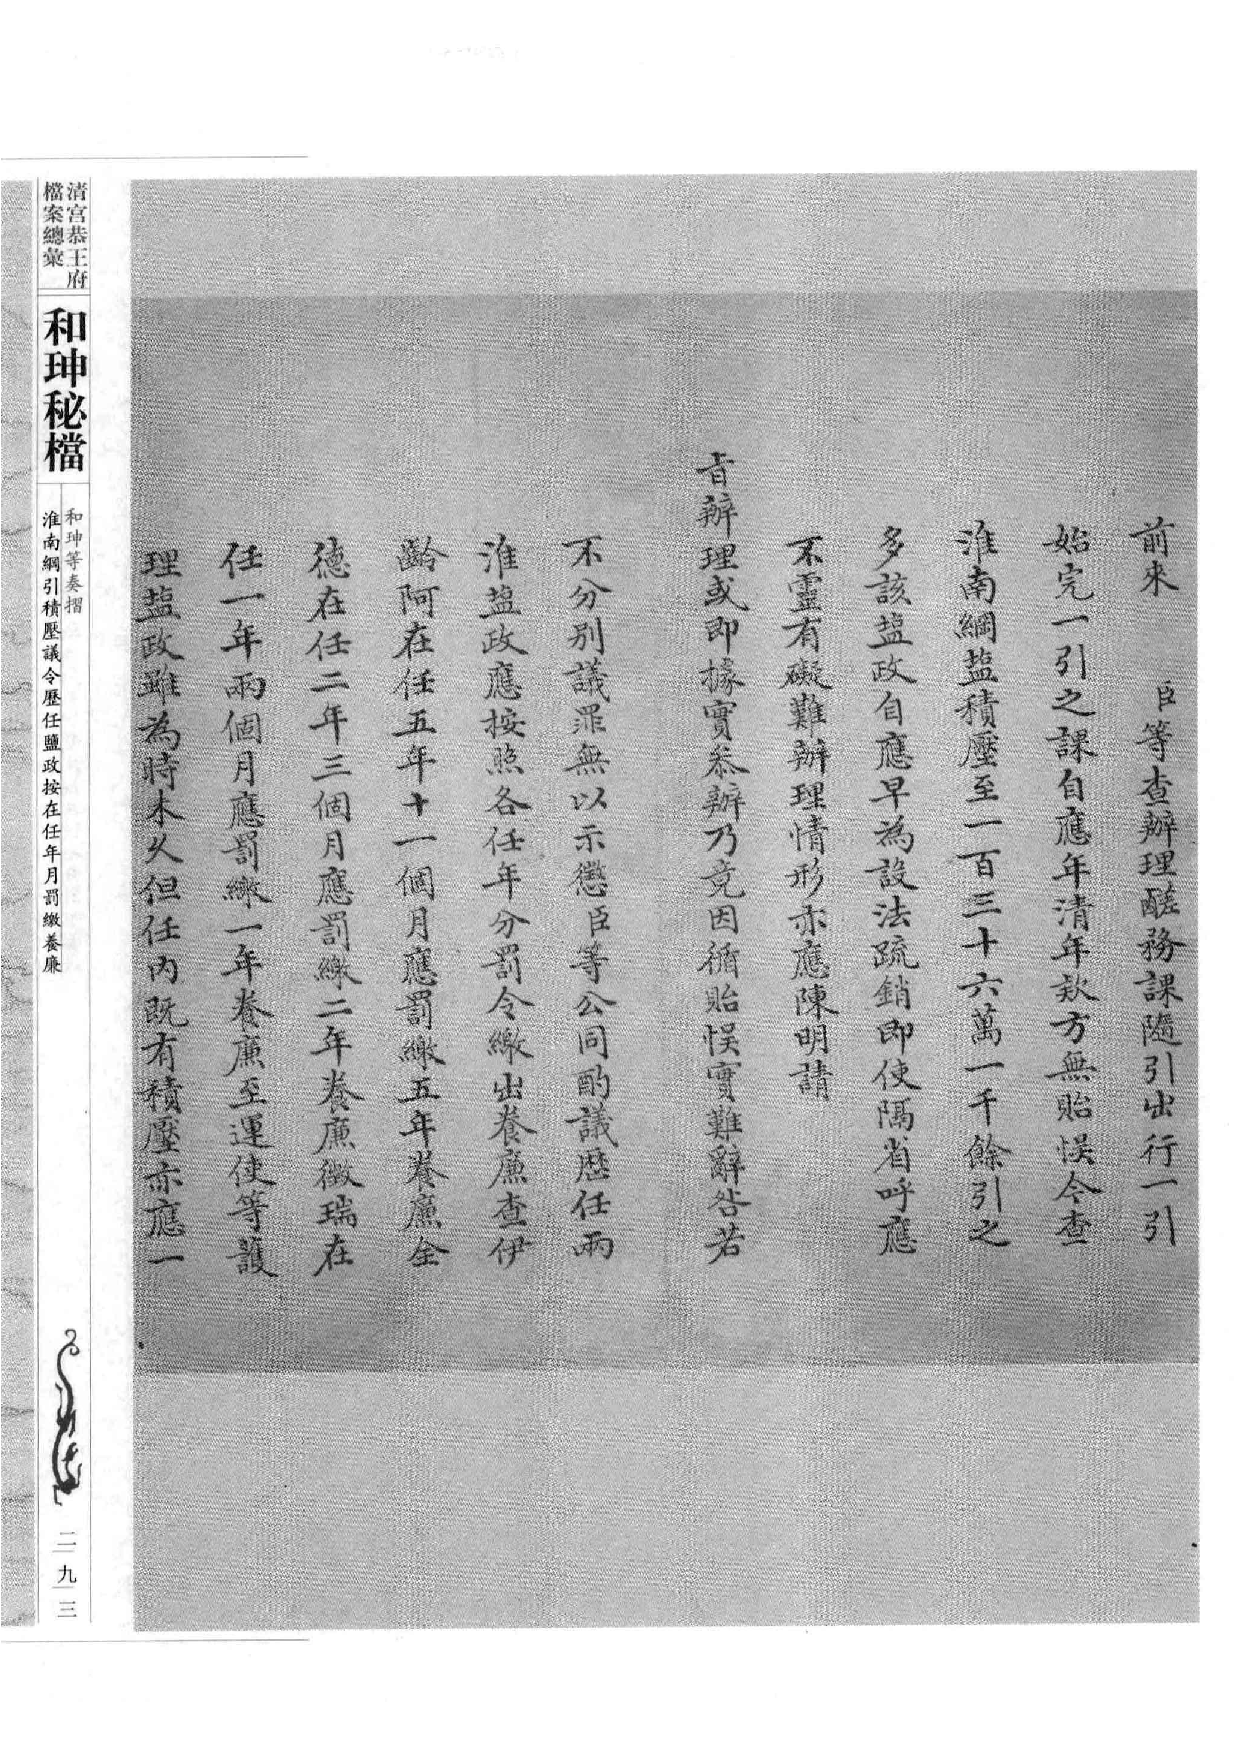 前來 臣等查辦理鹺務課隨引出行一引
始完一引之課自應年清年款方無貽悞今查
淮南綱盐積壓至一百三十六萬一千餘引之
多該盐政自應早為設法疏銷即使隔省呼應
不靈有礙難辦理情形亦應陳明請
旨辦理或即據實叅辦乃竟因循貽悞實難辭咎若
不分别議罪無以示懲臣等公同酌議歴任兩
淮盐政應按照各任年分罰令繳出養廉查伊
齡阿在任五年十一個月應罰繳五年養廉全
德在任二年三個月應罰繳二年養廉徵瑞在
任一年兩個月應罰繳一年養廉至運使等護
理盐政雖為時未久但任内既有積壓亦應一
清宮恭王府
檔案總彙
和珅秘檔
和珅等奏摺
淮南綱引積壓議令歷任鹽政按在任年月罰繳養廉
二九三